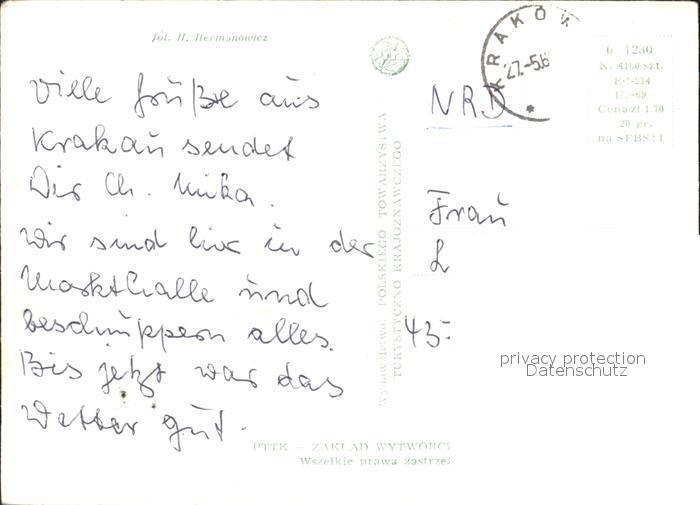 fot. H. Hermanowicz
Viele Grüße aus
Krakau sendet
Dir Ch. Mika.
Wir sind hier in der
Markthalle und
beschnuppern alles.
Bis jetzt war das
Wetter gut.
Wydawnictwo POLSKIEGO TOWARZYSTWA
TURYSTYCZNO KRAJOZNAWCZEGO
PTTK – ZAKŁAD WYTWÓRC
Wszelkie prawa zastrze
KRAKÓW
27.-5.6
6 1230
N. 4160 szt.
Cena zł 1.70
20 gr.
na SFBS:I
NRD
Frau
L
43-
privacy protection
Datenschutz